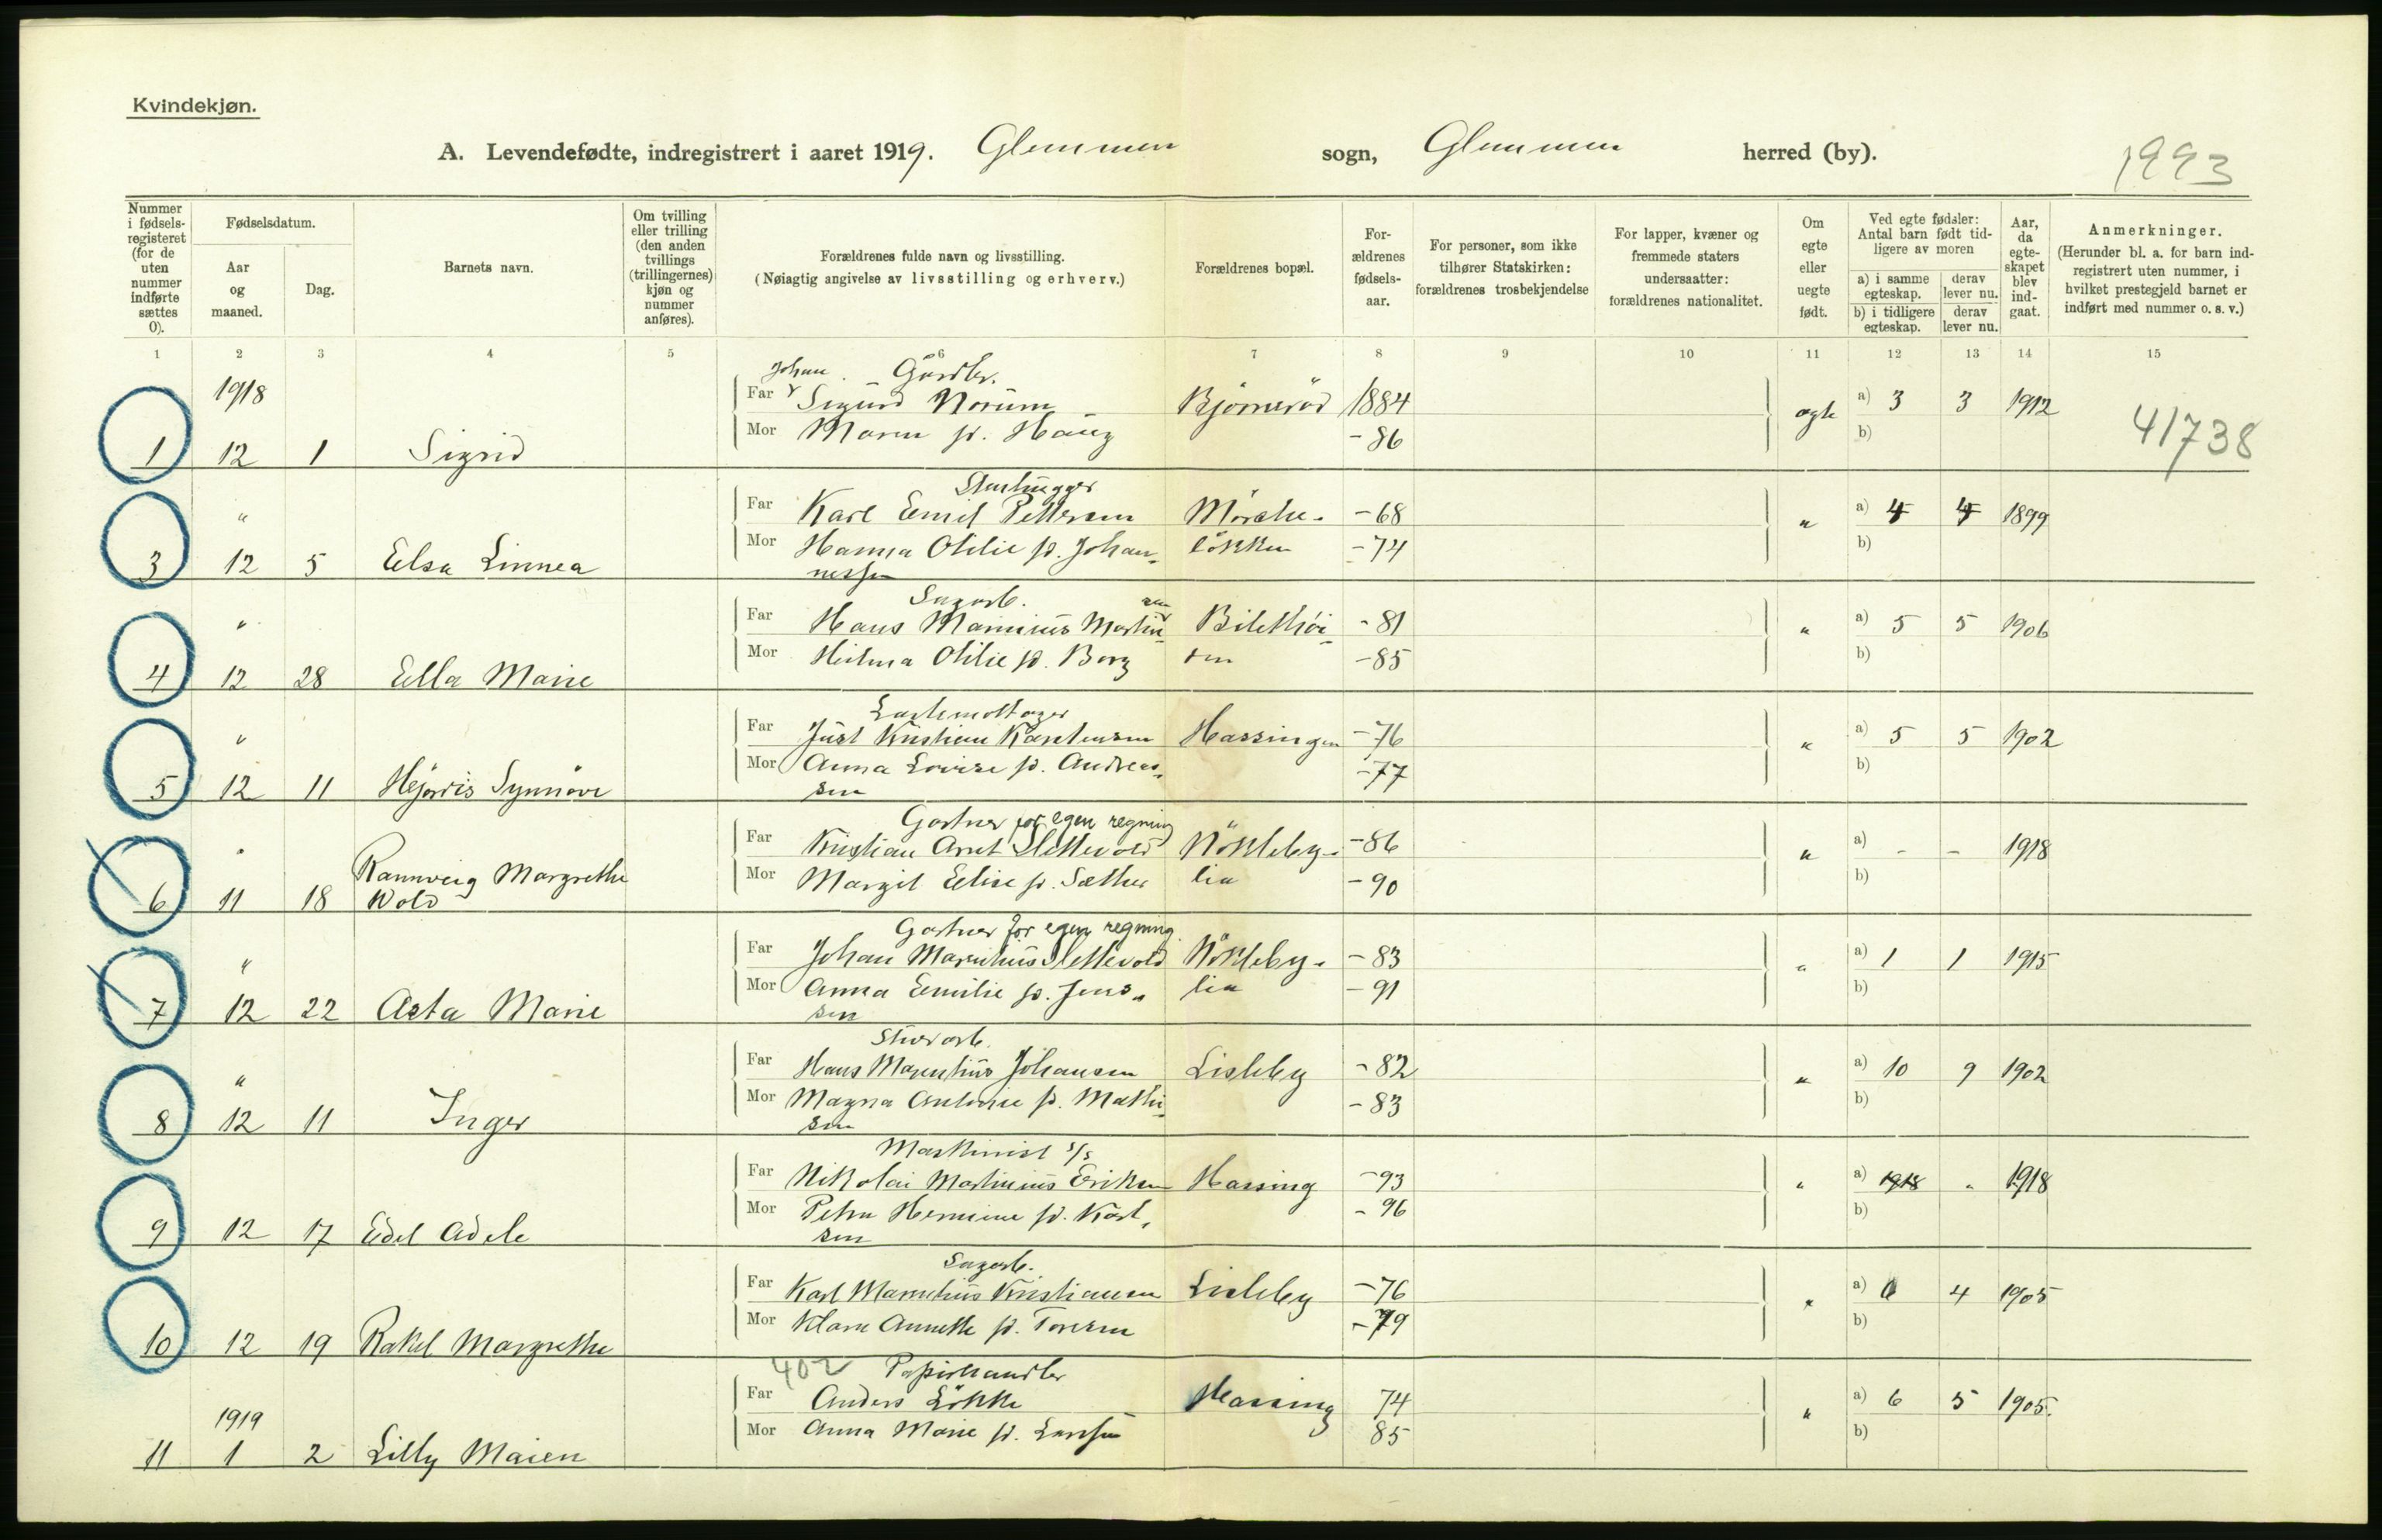 Kvindekjøn.
A. Levendefødte, indregistrert i aaret 1919. Glemmen sogn, Glemmen herred (by). 1993
Nummer i fødsels-registeret (for de uten nummer indførte sættes 0).
Fødselsdatum.
Aar og maaned.
Dag.
Barnets navn.
Om tvilling eller trilling (den anden tvillings (trillingernes) kjøn og nummer anføres).
Forældrenes fulde navn og livsstilling.
(Nøiagtig angivelse av livsstilling og erhverv.)
Forældrenes bopæl.
For-ældrenes fødsels-aar.
For personer, som ikke tilhører Statskirken: forældrenes trosbekjendelse
For lapper, kvæner og fremmede staters undersaatter: forældrenes nationalitet.
Om egte eller uegte født.
Ved egte fødsler: Antal barn født tid-ligere av moren
a) i samme egteskap. derav lever nu.
b) i tidligere egteskap. derav lever nu.
Aar, da egte-skapet blev ind-gaat.
Anmerkninger.
(Herunder bl. a. for barn ind-registrert uten nummer, i hvilket prestegjeld barnet er indført med nummer o. s. v.)
1 2 3 4 5 6 7 8 9 10 11 12 13 14 15
Johan
1918 Far Sigurd Norum Bjørnerød 1884 a) 3 3 1912
Mor Maren f. Haug -86 b) 41738
1 12 1 Sigrid
Stenhugger
" Far Karl Emil Pettersen -68 " a) 4 4 1899
Mor Hanna Otilie f. Johan- løkken -74 b)
3 12 5 Elsa Linnea nessen
Sagarb.
" Far Hans Marinius Martin sen -81 " a) 5 5 1906
Mor Hilma Otilie f. Borg -85 b)
4 12 28 Ella Marie
" Far Just Kristian Karstensen Hassingen -76 " a) 5 5 1902
Mor Anna Lovise f. Andreas- -77 b)
5 12 11 Hjørdis Synnøve sen
Gartner for egen regning
" Far Kristian Arnt Slettevold Nøkleby- -86 " a) - - 1918
Mor Margit Elise f. Sæther lia -90 b)
6 11 18 Rannveig Margrethe Wold
Gartner for egen regning.
" Far Johan Marenhius Slettevold Nøkleby- -83 " a) 1 1 1915
Mor Anna Emilie f. Jens- lia -91 b)
7 12 22 Asta Marie sen
" Far Hans Marenhius Johansen Lisleby -82 " a) 10 9 1902
Mor Magna Antonie f. Mathi- -83 b)
8 12 11 Inger sen
Maskinist s/s
Far Nikolai Martinius Eriksen Hassing -93 " a) 1918 " 1918
Mor Petra Hermine f. Karl- -96 b)
9 12 17 Edel Adele sen
Sagarb.
Far Karl Marenhius Kristiansen Lisleby -76 " a) 6 4 1905
Mor Klara Annette f. Toresen -79 b)
10 12 19 Rakel Margrethe
402 Papirhandler
1919 Far Anders Løkke Hassing 74 " a) 6 5 1905.
Mor Anna Marie f. Larsen 85 b)
11 1 2 Lilly Maien